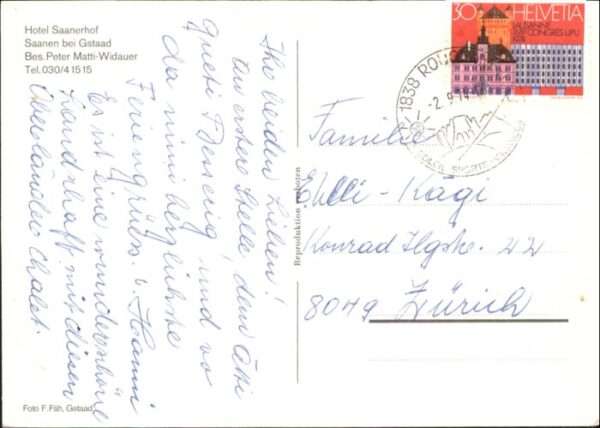 Hotel Saanerhof
Saanen bei Gstaad
Bes. Peter Matti-Widauer
Tel. 030/4 15 15
Ihr beiden Lieben!
An erster Stelle dem Ätti
gueti Besserig, und vo
da mini herzlichste
Feriengrüss. s. Hanni
Es ist eine wunderschöne
Landschaft mit diesen
Oberländer Chalet.
Foto F. Fäh, Gstaad
Reproduktion verboten
30 HELVETIA
LAUSANNE
CONGRES UPU
1974
1838 ROUGE
-2.9.74
Familie
Egli-Kägi
Konrad Ilgstr. 22
8049 Zürich